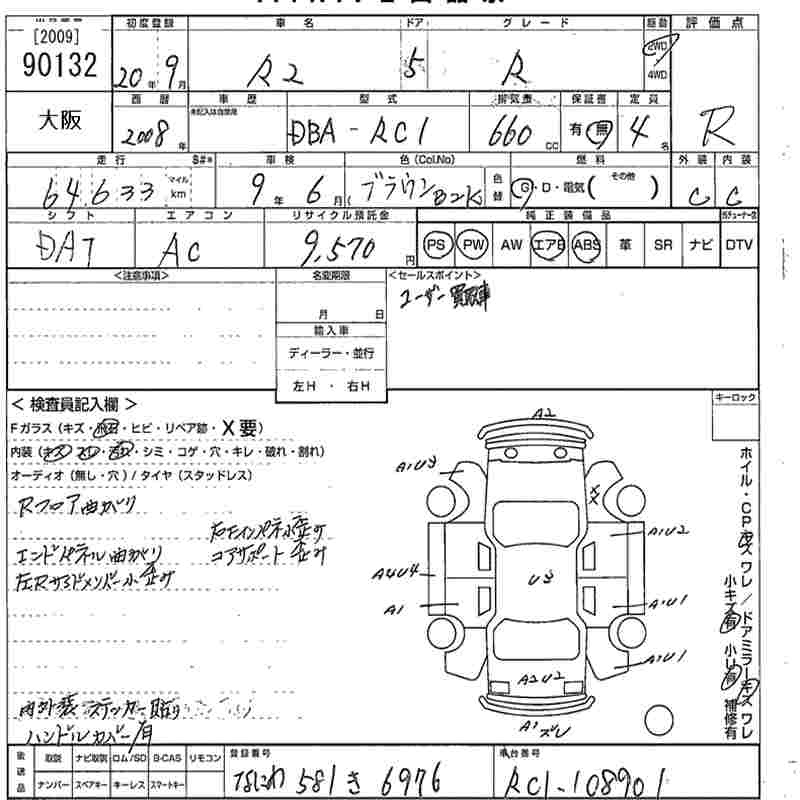 [2009]
90132
初度登録 車名 ドア グレード 駆動 評価点
20年 9月 R2 5 R 2WD 4WD R
大阪
西暦 車歴 型式 排気量 保証書 定員
未記入は自家用
2008年 DBA-RC1 660cc 有・無 4名
走行 S#* 車検 色(Col.No) 色替 燃料 外装 内装
64633 マイル km 9年 6月 ブラウン G・D・電気( その他 ) C C
シフト エアコン リサイクル預託金 純正装備品
DAT AC 9,570円 PS PW AW エアB ABS 革 SR ナビ DTV
<注意事項> 名変期限 <セールスポイント>
ユーザー買取車
月 日
輸入車
ディーラー・並行
左H ・ 右H
<検査員記入欄>
キーロック
Fガラス(キズ・飛石・ヒビ・リペア跡・X要)
内装(キズ・スレ・汚れ・シミ・コゲ・穴・キレ・破れ・割れ)
オーディオ(無し・穴)/タイヤ(スタッドレス)
Rフロア曲がり
エンドパネル曲がり
コアサポート歪み
左Rサイドメンバー小歪み
内外装ステッカー貼り
ハンドルカバー有
A2
A1U3
XX
A1U2
A4U4
U3
A1
A1U1
A2U2
A1U1
A1 ズレ
ホイル・CPキズ ワレ/ドアミラーキズ ワレ
小キズ有 小U有 補修有
後送品 取説 ナビ取説 ロム/SD B-CAS リモコン 登録番号 車台番号
ナンバー スペアキー キーレス スマートキー
なにわ 581 き 6976 RC1-108901